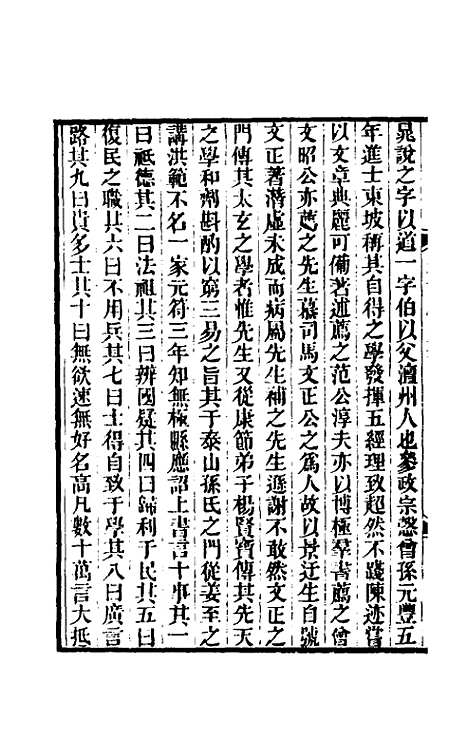 晁說之字以道一字伯以父澶州人也參政宗慤曾孫元豐五
年進士東坡稱其自得之學發揮五經理致超然不踐陳迹嘗
以文章典麗可備著述薦之范公淳夫亦以博極羣書薦之曾
文昭公亦薦之先生慕司馬文正公之爲人故以景迂生自號
文正著潛虛未成而病屬先生補之先生遜謝不敢然文正之
門傳其太玄之學者惟先生又從康節弟子楊賢寶傳其先天
之學和劑斟酌以窮三易之旨其于泰山孫氏之門從姜至之
講洪範不名一家元符三年知無極縣應詔上書言十事其一
曰祗德其二曰法祖其三曰辨國疑其四曰歸利于民其五曰
復民之職其六曰不用兵其七曰士得自致于學其八曰廣言
路其九曰貴多士其十曰無欲速無好名高凡數十萬言大抵